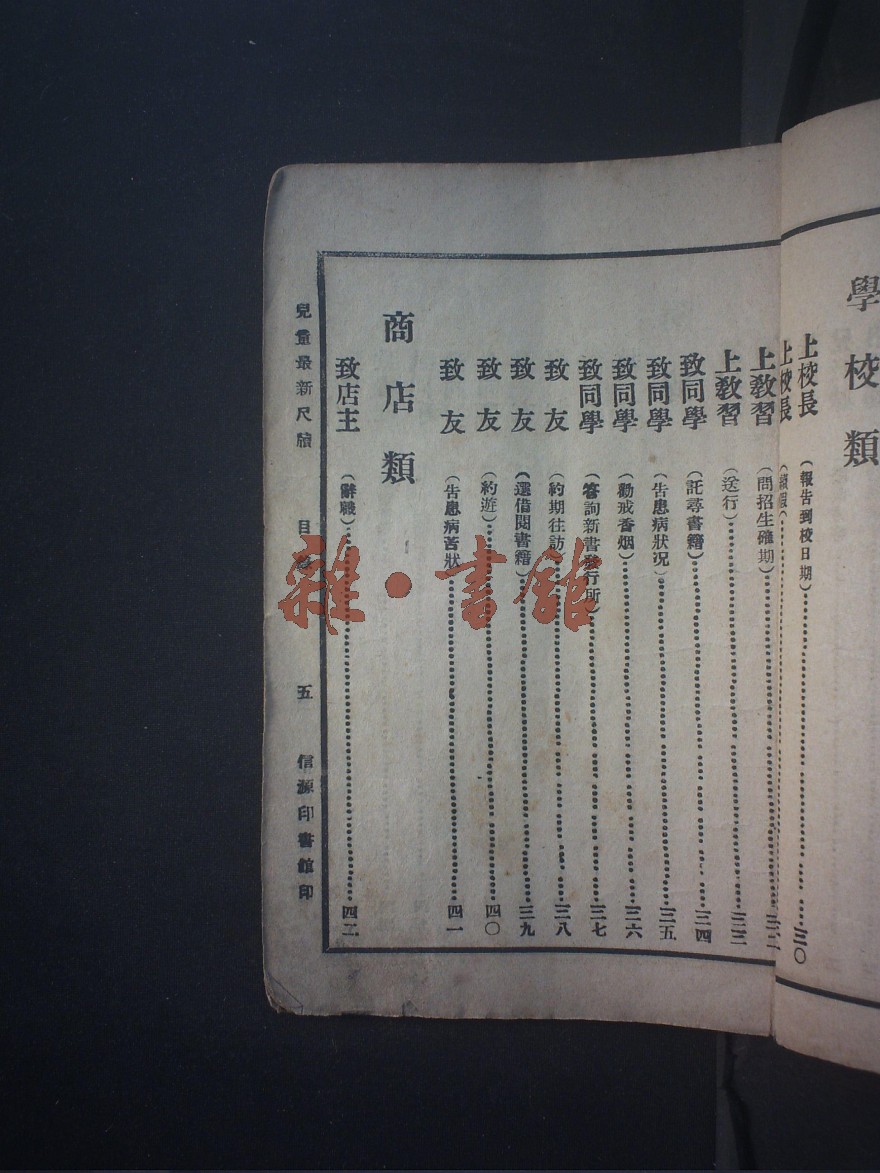 學校類
上校長（報告到校日期）三〇
上校長
上教習（問招生確期）三二
上教習（送行）三三
致同學（託尋書籍）三四
致同學（告患病狀况）三五
致同學（勸戒香烟）三六
致同學（答詢新書發行所）三七
致友（約期往訪）三八
致友（還借閱書籍）三九
致友（約遊）四〇
致友（告患病苦狀）四一
商店類
致店主（辭職）四二
兒童最新尺牘 目 五 信源印書館印
雜·書館